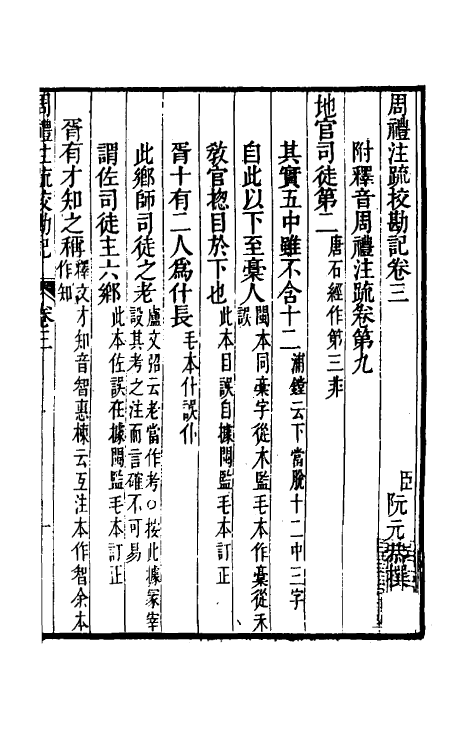 周禮注疏挍勘記卷三
臣阮元恭撰
附釋音周禮注疏卷第九
地官司徒第二唐石經作第三非
其實五中雖不含十二浦鏜云下當脫十二中三字
自此以下至稾人閩本同稾字從木監毛本作稾從禾
誤
敎官揔目於下也此本目誤自據閩監毛本訂正
胥十有二人爲什長毛本什誤仆
此鄉師司徒之老盧文弨云老當作考○按此據冢宰
設其考之注而言確不可易
謂佐司徒主六鄉此本佐誤在據閩監毛本訂正
胥有才知之稱釋文才知音智惠棟云互注本作智余本
作知
周禮注疏挍勘記
卷三
一